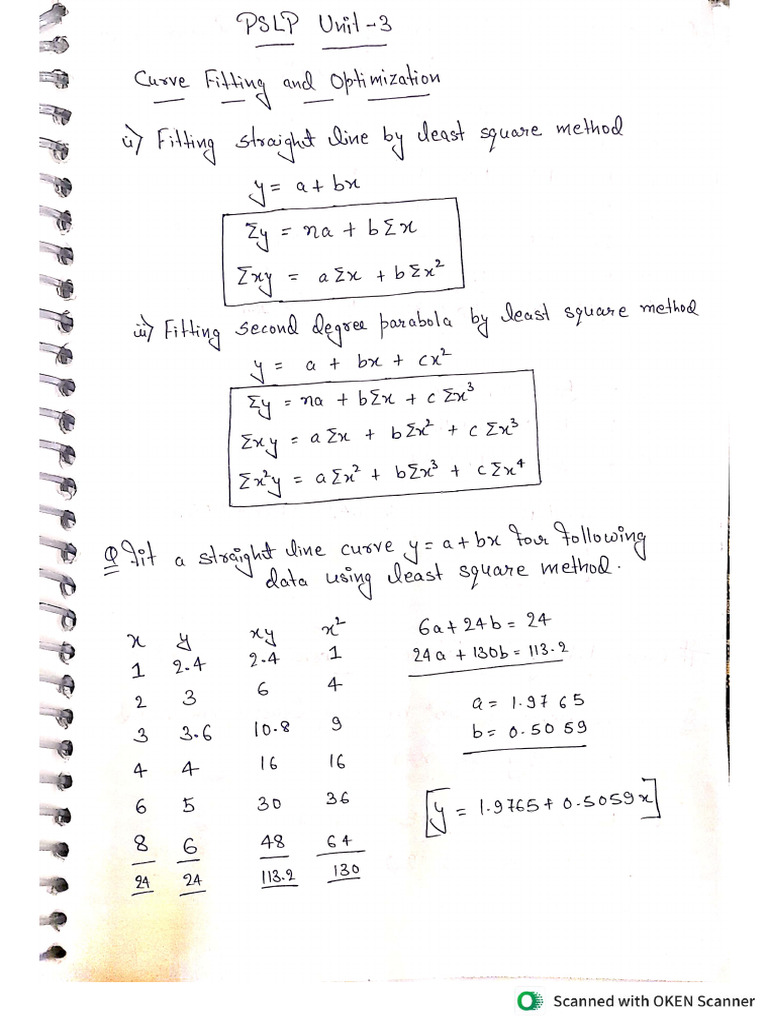 PSLP Unit-3
Curve Fitting and Optimization
i) Fitting straight line by least square method
y = a + bx
Σy = na + bΣx
Σxy = aΣx + bΣx²
ii) Fitting second degree parabola by least square method
y = a + bx + cx²
Σy = na + bΣx + cΣx³
Σxy = aΣx + bΣx² + cΣx³
Σx²y = aΣx² + bΣx³ + cΣx⁴
Q fit a straight line curve y = a + bx for following
data using least square method.
x y xy x²
1 2.4 2.4 1
2 3 6 4
3 3.6 10.8 9
4 4 16 16
6 5 30 36
8 6 48 64
24 24 113.2 130
6a + 24b = 24
24a + 130b = 113.2
a = 1.9765
b = 0.5059
[y = 1.9765 + 0.5059x]
Scanned with OKEN Scanner